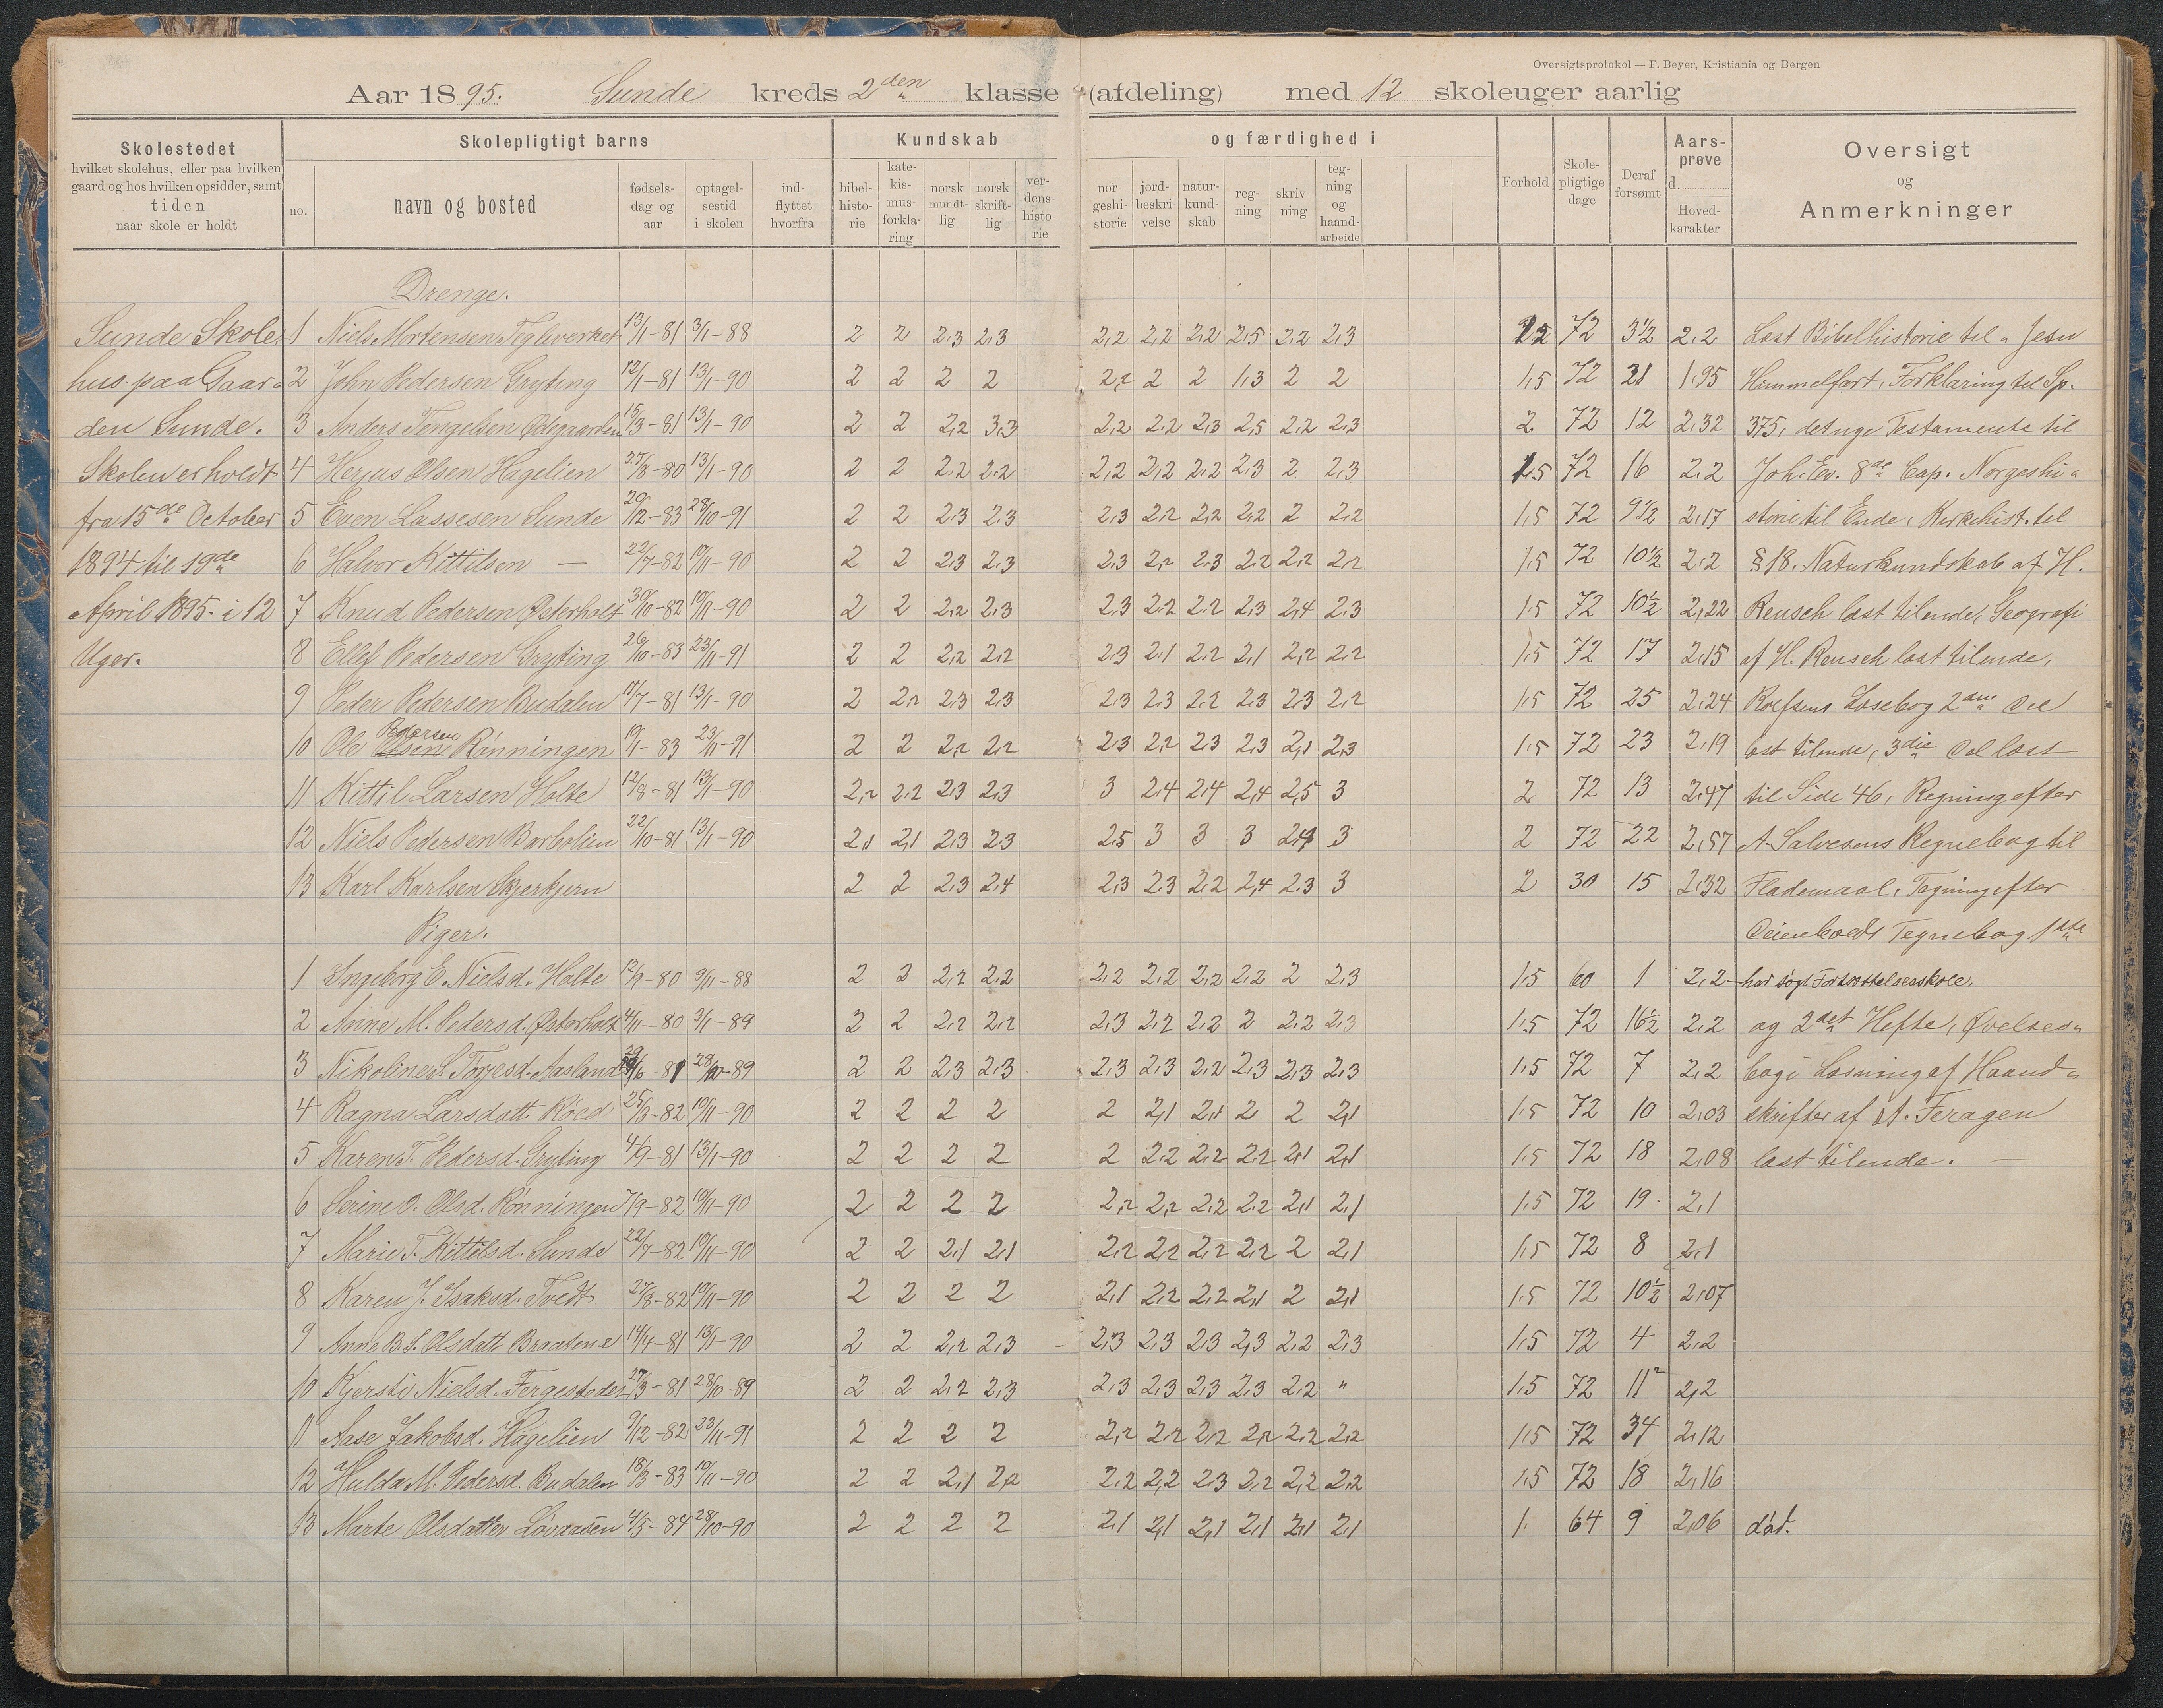 Oversigtsprotokol — F. Beyer, Kristiania og Bergen
Aar 1895. Sunde kreds 2den klasse (afdeling) med 12 skoleuger aarlig
Skolestedet
hvilket skolehus, eller paa hvilken
gaard og hos hvilken opsidder, samt
tiden
naar skole er holdt
Skolepligtigt barns
no. navn og bosted
fødsels-
dag og
aar
optagel-
sestid
i skolen
ind-
flyttet
hvorfra
Kundskab og færdighed i
bibel-
histo-
rie
kate-
kis-
mus-
forkla-
ring
norsk
mundt-
lig
norsk
skrift-
lig
ver-
dens-
histo-
rie
nor-
geshi-
storie
jord-
beskri-
velse
natur-
kund-
skab
reg-
ning
skriv-
ning
teg-
ning
og
haand-
arbeide
Forhold
Skole-
pligtige
dage
Deraf
forsømt
Aars-
prøve
d.
Hoved-
karakter
Oversigt
og
Anmerkninger
Sunde Skole-
hus paa Gaar-
den Sunde.
Skolen er holdt
fra 15de October
1894 til 19de
April 1895. i 12
Uger.
Drenge.
1 Niels Mortensen Teglverket 13/1-81 3/1-88 2 2 2,3 2,3 2,2 2,2 2,2 2,5 2,2 2,3 72 3 1/2 2,2 Læst Bibelhistorie til "Jesu
2 John Pedersen Gryting 12/1-81 13/1-90 2 2 2 2 2,2 2 2 1,3 2 2 1,5 72 21 1,95 Himmelfart, Forklaring til Sp.
3 Anders Tengelsen Ødegaarden 15/3-81 13/1-90 2 2 2,2 3,3 2,2 2,2 2,3 2,5 2,2 2,3 2 72 12 2,32 375, det nye Testamente til
4 Olsen Hagelien 27/8-80 13/1-90 2 2 2,2 2,2 2,2 2,2 2,2 2,3 2 2,3 1,5 72 16 2,2 Joh. Ev. 8de Cap. Norgeshi-
5 Even Lassesen Sunde 20/12-83 28/10-91 2 2 2,3 2,3 2,3 2,2 2,2 2,2 2 2,2 1,5 72 9 1/2 2,17 storie til Ende, Kirkehist. til
6 Halvor Kittilsen — 22/7-82 19/11-90 2 2 2,3 2,3 2,3 2,2 2,3 2,2 2,2 2,2 1,5 72 10 1/2 2,2 § 18. Naturkundskab af H.
7 Knud Pedersen Østerholt 30/10-82 19/11-90 2 2 2,2 2,3 2,3 2,2 2,2 2,3 2,4 2,3 1,5 72 10 1/2 2,22 Reusch læst tilende, Geografi
8 Ellef Pedersen Gryting 26/10-83 23/11-91 2 2 2,2 2,2 2,3 2,1 2,2 2,1 2,2 2,2 1,5 72 17 2,15 af H. Reusch læst tilende,
9 Peder Pedersen Budalen 11/7-81 13/1-90 2 2,2 2,3 2,3 2,3 2,3 2,2 2,3 2,3 2,2 1,5 72 25 2,24 Rolfsens Læsebog 2den Del
10 Ole Olsen Pedersen Rønningen 19/1-83 23/11-91 2 2 2,2 2,2 2,3 2,2 2,3 2,3 2,1 2,3 1,5 72 23 2,19 læst tilende, 3die Del læst
11 Kittil Larsen Holte 12/8-81 13/1-90 2,2 2,2 2,3 2,3 3 2,4 2,4 2,4 2,5 3 2 72 13 2,47 til Side 46, Regning efter
12 Niels Pedersen Barbolien 22/10-81 13/1-90 2,1 2,1 2,3 2,3 2,5 3 3 3 3 2 72 22 2,57 A. Salvesens Regnebog til
13 Karl Karlsen Skjerkjern 2 2 2,3 2,4 2,3 2,3 2,2 2,4 2,3 3 2 30 15 2,32 Flademaal, Tegning efter
Piger. Tegnebog 1ste
1 Ingeborg E. Nielsd. Holte 12/9-80 9/11-88 2 2 2,2 2,2 2,2 2,2 2,2 2,2 2 2,3 1,5 60 1 2,2 - har søgt Fortsættelsesskole.
2 Anne M. Pedersd. Østerholt 4/11-80 3/1-89 2 2 2,2 2,2 2,3 2,2 2,2 2 2,2 2,3 1,5 72 16 1/2 2,2 og 2det Hefte, Øvelses-
3 Nikoline S. Torjesd. Aasland 29/6-81 28/10-89 2 2 2,3 2,3 2,3 2,3 2,2 2,3 2,3 2,3 1,5 72 7 2,2 bog i Læsning af Haand-
4 Ragna Larsdatt. Røed 25/3-82 19/11-90 2 2 2 2 2 2,1 2,1 2 2 2,1 1,5 72 10 2,03 skrifter af A. Feragen
5 Karen T. Pedersd. Gryting 4/9-81 13/1-90 2 2 2 2 2 2,2 2,2 2,2 2,1 2,1 1,5 72 18 2,08 læst tilende. —
6 Serine O. Olsd. Rønningen 7/9-82 19/11-90 2 2 2 2 2,2 2,2 2,2 2,2 2,1 2,1 1,5 72 19. 2,1
7 Marie T. Kittilsd. Sunde 22/7-82 19/11-90 2 2 2,1 2,1 2,2 2,2 2,2 2,2 2 2,1 1,5 72 8 2,1
8 Karen J. Isaksd. Tvedt 27/8-82 19/11-90 2 2 2 2 2,1 2,2 2,2 2,1 2 2,1 1,5 72 10 1/2 2,07
9 Anne B. S. Olsdatt Braatene 14/4-81 13/1-90 2 2 2,2 2,3 2,3 2,3 2,3 2,3 2,2 2,3 1,5 72 4 2,2
10 Kjersti Nielsd. Fergesteden 27/3-81 28/10-89 2 2 2,2 2,3 2,3 2,3 2,3 2,3 2,2 " 1,5 72 11 2,2
11 Aase Jakobsd. Hagelien 9/12-82 23/11-91 2 2 2 2 2,2 2,2 2,2 2,2 2,2 2,2 1,5 72 34 2,12
12 Hulda M. Pedersd. Budalen 18/3-83 19/11-90 2 2 2,1 2,2 2,2 2,2 2,3 2,2 2,2 2,2 1,5 72 18 2,16
13 Marte Olsdatter Løvaasen 4/5-84 28/10-90 2 2 2 2 2,1 2,1 2,1 2,1 2,1 2,1 1. 64 9 2,06 død.